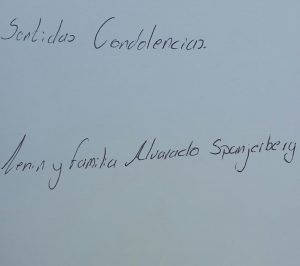 Sentidas Condolencias.
Lenin y familia Alvarado Spanjerberg